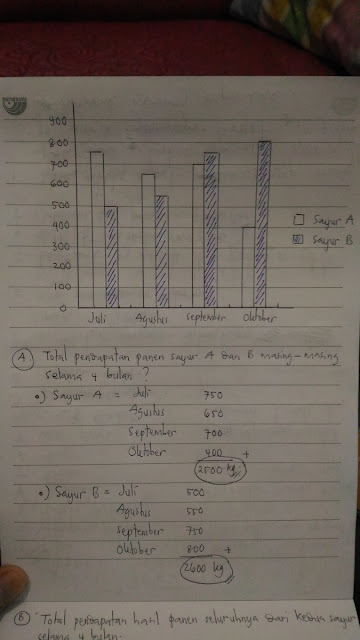 900
800
700
600
500
400
300
200
100
0
Sayur A
Sayur B
Juli Agustus September Oktober
A Total pendapatan panen sayur A dan B masing-masing
selama 4 bulan ?
•) Sayur A = Juli 750
Agustus 650
September 700
Oktober 400 +
2500 kg
•) Sayur B = Juli 500
Agustus 550
September 750
Oktober 800 +
2600 kg
B Total pendapatan hasil panen seluruhnya dari kedua sayur
selama 4 bulan.